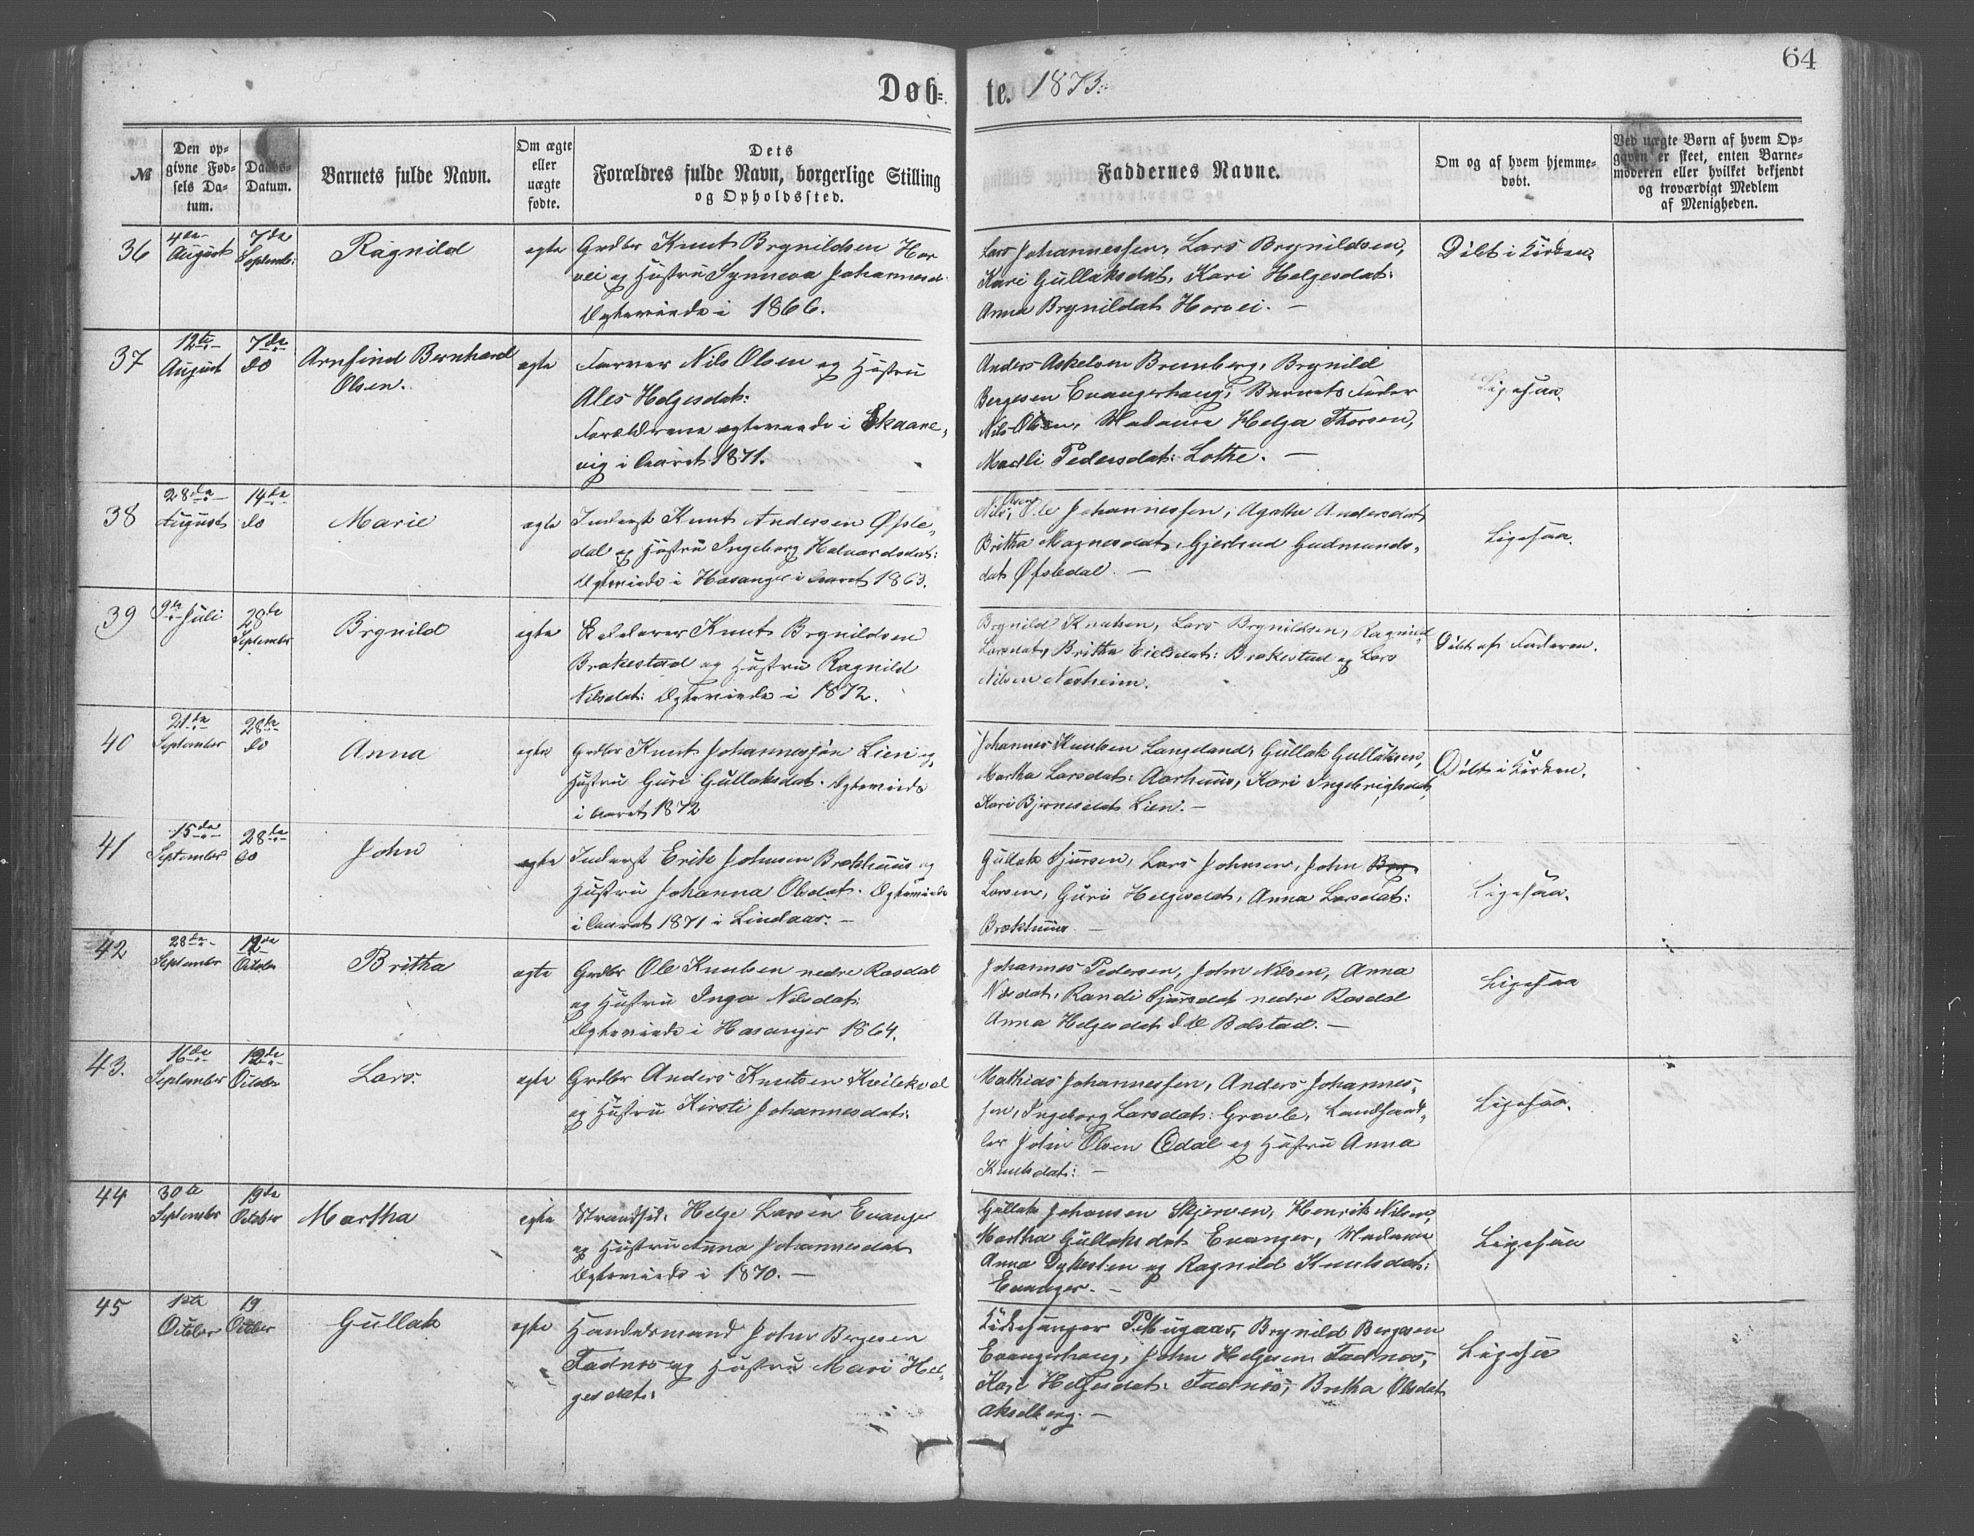 64
Døb=
te. 1873.
№
Den op-
givne Fød-
sels Da-
tum.
Daabs-
Datum.
Barnets fulde Navn.
Om ægte
eller
uægte
fødte.
Dets
Forældres fulde Navn, borgerlige Stilling
og Opholdssted.
Faddernes Navne.
Om og af hvem hjemme-
døbt.
Ved uægte Børn af hvem Op-
gaven er skeet, enten Barne-
moderen eller hvilket bekjendt
og troværdigt Medlem
af Menigheden.
36
4de
August
7de
September
Ragnild
egte
Grdbr Knut Brynildsen Hor
vei og Hustru Synneva Johannesd.
Egteviede i 1866.
Lars Johannessen, Lars Brynildsen,
Kari Gullaksdat, Kari Helgesdat:
Anna Brynildat Horvei. —
Døbt i Kirken.
37
12te
August
7de
do
Arnfind Bernhard
Olsen.
egte
Farver Nils Olsen og Hustru
Ales Helgesdat:
Forældrene egteviede i Skaane,
vig i Aaret 1871.
Anders Askelsen Brunborg, Brynild
Bergesen Evangerhaug, Barnets Fader
Nils Olsen, Madame Helga Thorsen,
Madli Pedersdat: Lothe. —
Ligesaa.
38
28de
August
14de
do
Marie
egte
Inderst Knut Andersen Øfsle-
dal og Hustru Ingeborg Halvardsdat:
Egteviede i Hosanger i Aaret 1863.
Nils, Ole Johannessen, Agatha Andersdat,
Britha Magnesdat, Gjertrud Gudmunds-
dat Øfsledal. —
Ligesaa.
39
9de Juli
28de
September
Brynild
egte
Knut Brynildsen
Brakestad og Hustru Ragnild
Nilsdat: Egteviede i 1872.
Brynild Knutsen, Lars Brynildsen, Ragnild
Larsdat, Britha Eielsdat: Brakestad og Lars
Nilsen Nesheim.
Døbt af Faderen.
40
21de
September
28de
do
Anna
egte
Grdbr Knut Johannessen Lien og
Hustru Guri Gullaksdat. Egteviede
i Aaret 1872
Johannes Knutsen Langeland, Gullak Gullaksen,
Martha Larsdat: Aarhuus, Kari Ingebrigtsdat,
Kari Bjørnesdat Lien. —
Døbt i Kirken.
41
15de
September
28de
do
John
egte
Inderst Erik Johnsen Brækhuus og
Hustru Johanna Olsdat. Egteviede
i Aaret 1871 i Lindaas. —
Gullak Sjursen, Lars Johnsen, John
Larsen, Guri Helgesdat, Anna Larsdat:
Brækhuus —
Ligesaa.
42
28de
September
12de
October
Britha
egte
Grdbr Ole Knutsen nedre Rasdal
og Hustru Inga Nilsdat:
Egteviede i Hosanger 1864.
Johannes Pedersen, John Nilsen, Anna
Nilsdat, Randi Sjursdat nedre Rasdal
Anna Helgesdat Bolstad. —
Ligesaa
43.
16de
September
12de
October
Lars.
egte
Grdbr Anders Knutsen Kvilekval
og Hustru Kirsti Johannesdat:
Mathias Johannessen, Anders Johannes-
sen, Ingeborg Larsdat: Gravle, Landhand-
ler John Olsen Ødal og Hustru Anna
Knutsdat: —
Ligesaa.
44
30te
September
19de
October
Martha
egte
Strandsid. Helge Larsen Evanger
og Hustru Anna Johannesdat
Egteviede i 1870. —
Gullak Johansen Skjerven, Henrik Nilsen,
Martha Gullaksdat Evanger, Madame
Anna Dykesten og Ragnild Knutsdat:
Evanger. —
Ligesaa
45
1ste
October
19
October
Gullak
egte
Handelsmand John Bergesen
Fadnes og Hustru Mari Hel-
gesdat:
Kirkesanger P. Mugaas, Brynild Bergesen
Evangerhaug, John Helgesen Fadnes,
Kari Helgesdat: Fadnes, Britha Olsdat
Akselberg. —
Ligesaa